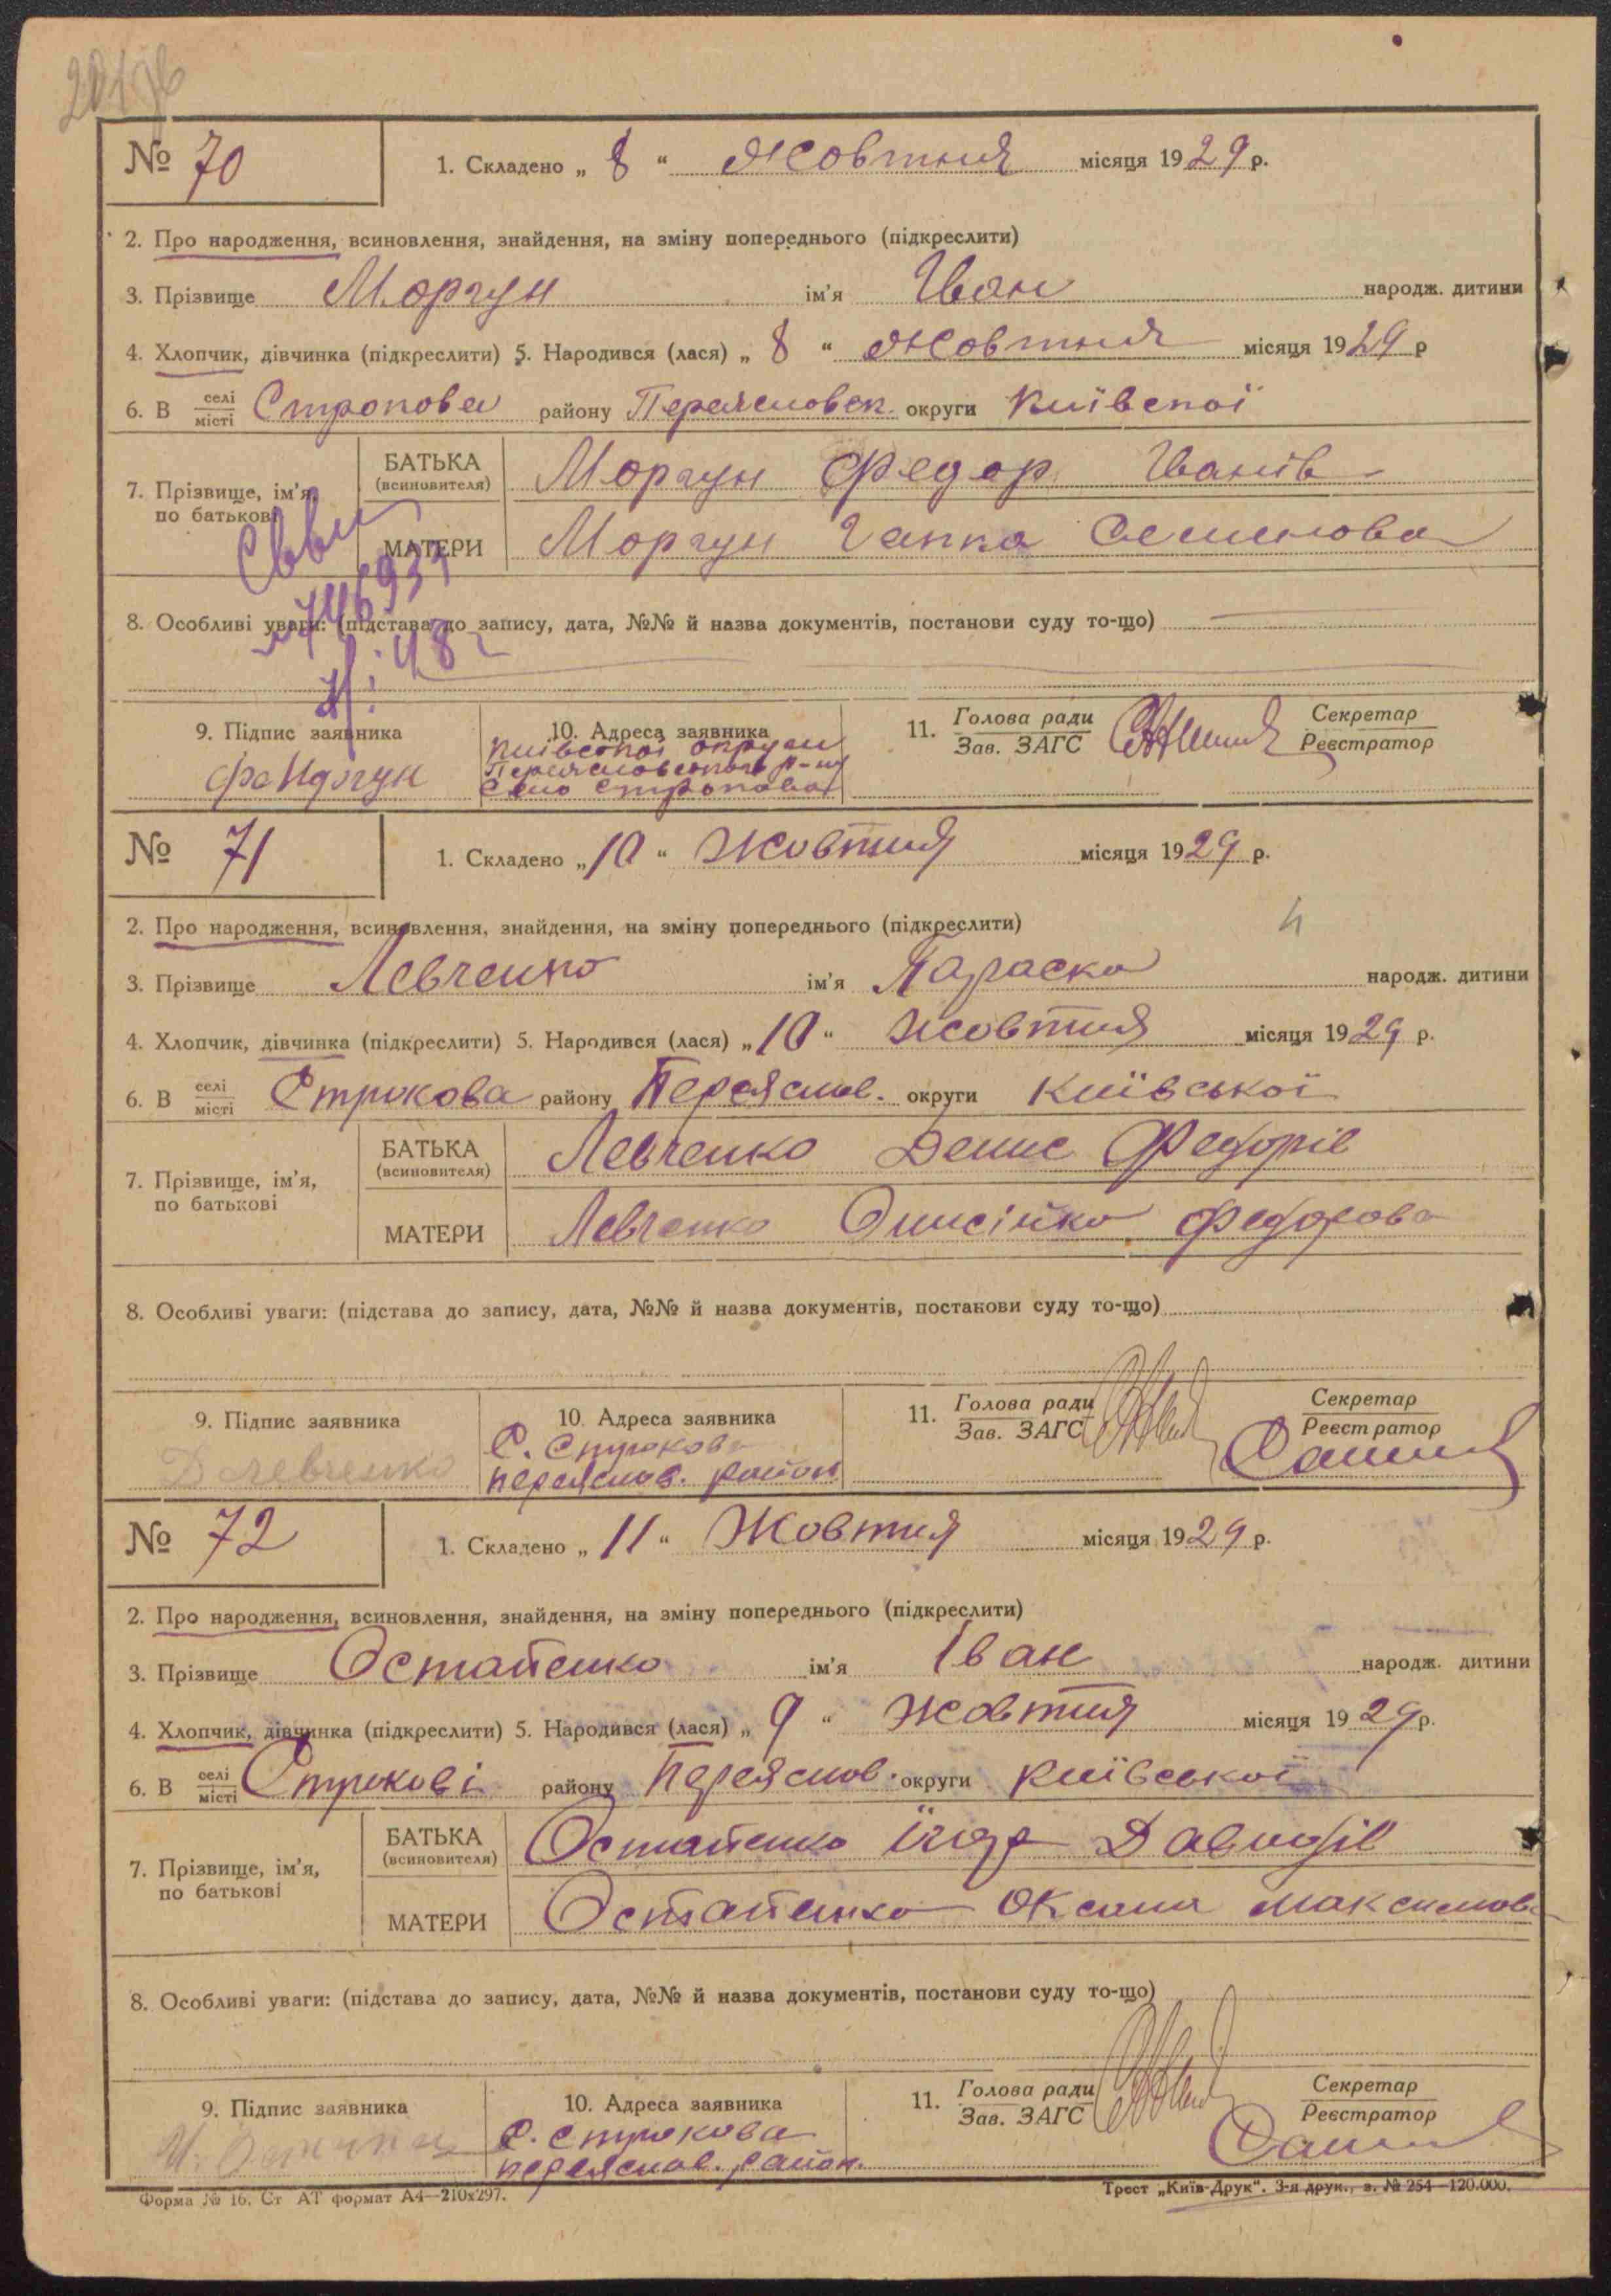 № 70
1. Складено „ 8 “ Жовтня місяця 1929 р.
2. Про народження, всиновлення, знайдення, на зміну попереднього (підкреслити)
3. Прізвище Моргун ім'я Іван народж. дитини
4. Хлопчик, дівчинка (підкреслити) 5. Народився (лася) „ 8 “ Жовтня місяця 1929 р
6. В селі місті Строкова району Переяславск. округи Київскої
7. Прізвище, ім'я, по батькові
БАТЬКА (всиновителя) Моргун Федор Іванів
МАТЕРИ Моргун Гапка Семенова
8. Особливі уваги: (підстава до запису, дата, №№ й назва документів, постанови суду то-що)
9. Підпис заявника
10. Адреса заявника
Київскої округи
Переяславского р-ну
Село Строкова
11. Голова ради Зав. ЗАГС Секретар Реєстратор
№ 71
1. Складено „ 10 “ Жовтня місяця 1929 р.
2. Про народження, всиновлення, знайдення, на зміну попереднього (підкреслити)
3. Прізвище Левченко ім'я Параска народж. дитини
4. Хлопчик, дівчинка (підкреслити) 5. Народився (лася) „ 10 “ жовтня місяця 1929 р.
6. В селі місті Строкова району Переяслав. округи Київської
7. Прізвище, ім'я, по батькові
БАТЬКА (всиновителя) Левченко Денис Федорів
МАТЕРИ Левченко Онисійка Федорова
8. Особливі уваги: (підстава до запису, дата, №№ й назва документів, постанови суду то-що)
9. Підпис заявника
Д Левченко
10. Адреса заявника
С. Строкова
переяслав. район
11. Голова ради Зав. ЗАГС Секретар Реєстратор
№ 72
1. Складено „ 11 “ Жовтня місяця 1929 р.
2. Про народження, всиновлення, знайдення, на зміну попереднього (підкреслити)
3. Прізвище Остапенко ім'я Іван народж. дитини
4. Хлопчик, дівчинка (підкреслити) 5. Народився (лася) „ 9 “ жовтня місяця 1929 р.
6. В селі місті Строкові району Переяслав. округи Київської
7. Прізвище, ім'я, по батькові
БАТЬКА (всиновителя) Остапенко Давидів
МАТЕРИ Остапенко Оксана Максимова
8. Особливі уваги: (підстава до запису, дата, №№ й назва документів, постанови суду то-що)
9. Підпис заявника
10. Адреса заявника
С. Строкова
переяслав. район.
11. Голова ради Зав. ЗАГС Секретар Реєстратор
Форма № 16. Ст АТ формат А4—210х297.
Трест „Київ-Друк“. 3-я друк., з. № 254—120.000.